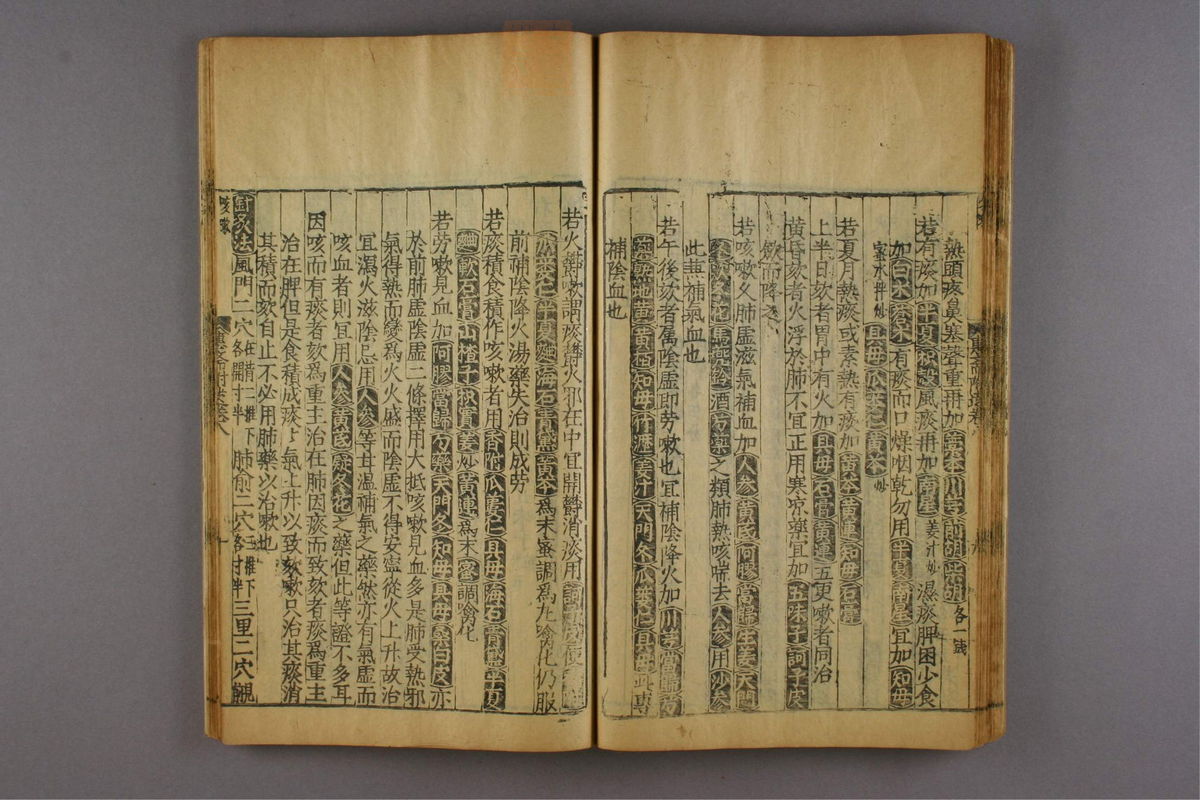 熱頭疼鼻塞聲重再加藁本川芎前胡柴胡各一錢
若有痰加半夏枳殼風痰再加南星姜汁炒濕痰脾困少食
加白朮蒼朮有痰而口燥咽乾勿用半夏南星宜加知母
蜜水拌炒貝母瓜蔞仁黃芩炒
若夏月熱痰或素熱有痰加黃芩黃連知母石膏
上半日欬者胃中有火加貝母石膏黃連五更嗽者同治
黃昏欬者火浮於肺不宜正用寒凉藥宜加五味子訶子皮
歛而降之
若咳嗽久肺虛滋氣補血加人參黃芪阿膠當歸生姜天門
冬款冬花馬兜鈴酒芍藥之類肺熱咳喘去人參用沙參
此兼補氣血也
若午後欬者屬陰虛即劳嗽也宜補陰降火加川芎當歸芍
藥熟地黃黃栢知母竹瀝姜汁天門冬瓜蔞仁貝母此專
補陰血也
若火鬱嗽謂痰鬱火邪在中宜開鬱消痰用訶子皮便香附
瓜蔞仁半夏麯海石青黛黃芩爲末蜜調爲丸噙化仍服
前補陰降火湯藥失治則成劳
若痰積食積作咳嗽者用香附瓜蔞仁貝母海石青黛半夏
麯軟石膏山楂子枳實姜炒黃連爲末蜜調噙化
若劳嗽見血加阿膠當歸芍藥天門冬知母貝母桑白皮亦
於前肺虛陰虛二條擇用大抵咳嗽見血多是肺受熱邪
氣得熱而變爲火火盛而陰虛不得安寧從火上升故治
宜瀉火滋陰忌用人參等甘溫補氣之藥然亦有氣虛而
咳血者則宜用人參黃芪款冬花之藥但此等證不多耳
因咳而有痰者欬爲重主治在肺因痰而致欬者痰爲重主
治在脾但是食積成痰痰氣上升以致欬嗽只治其痰消
其積而欬自止不必用肺藥以治嗽也
針灸法風門二穴在二椎下各開寸半肺俞二穴三椎下各寸半三里二穴輒
咳嗽